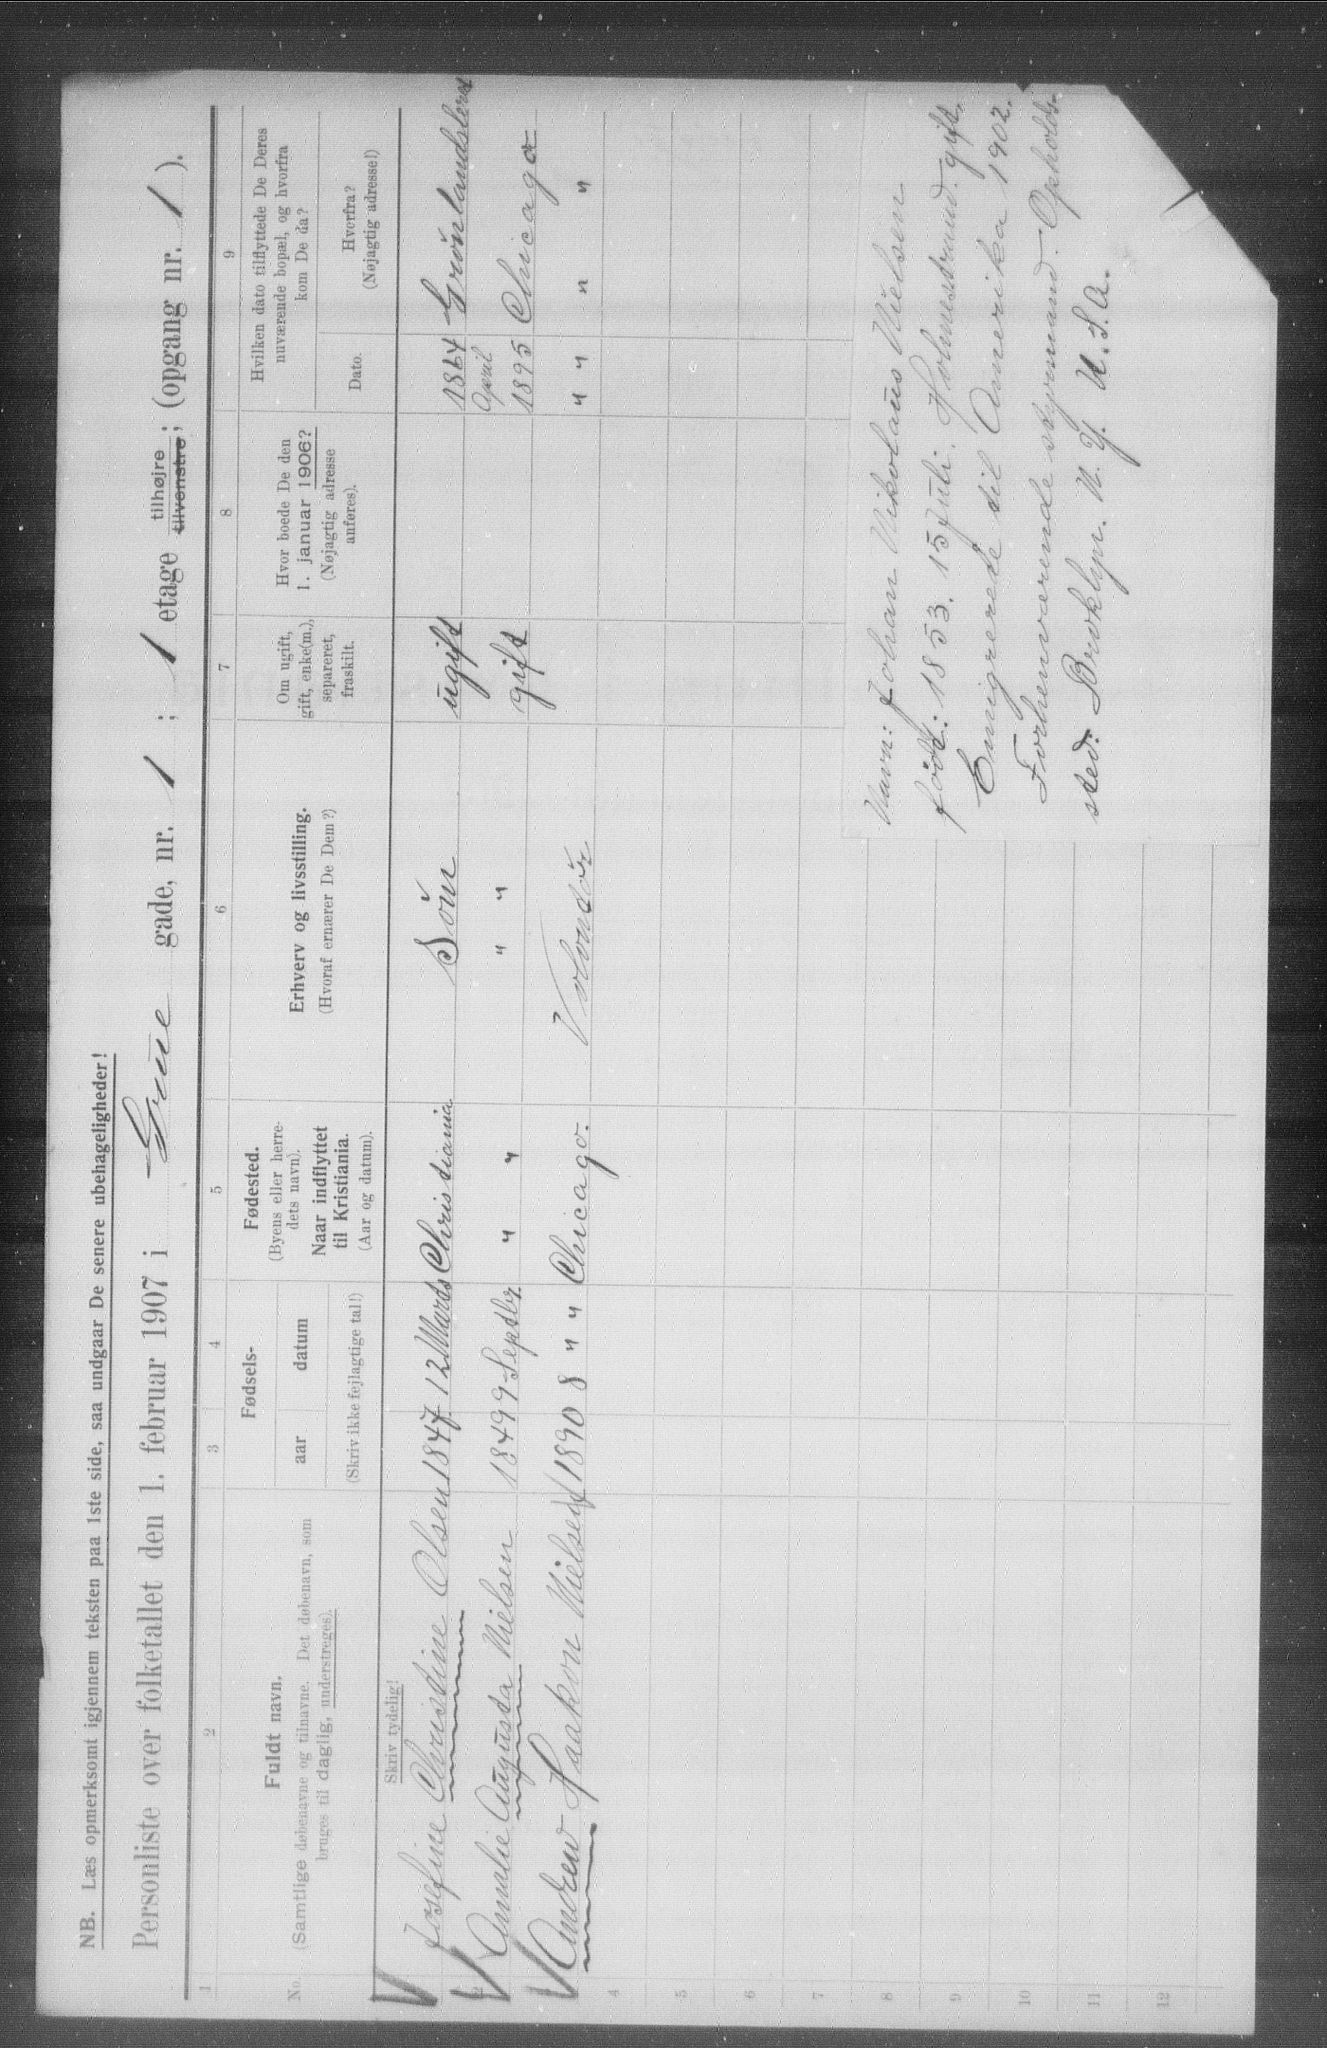 NB. Læs opmerksomt igjennem teksten paa 1ste side, saa undgaar De senere ubehageligheder!
Personliste over folketallet den 1. februar 1907 i Grüne gade, nr. 1 ; 1 etage tilhøjre tilvenstre; (opgang nr. 1 ).
1 2 3 4 5 6 7 8 9
No.
Fuldt navn.
(Samtlige døbenavne og tilnavne. Det døbenavn, som
bruges til daglig, understreges).
Fødsels-
aar datum
(Skriv ikke fejlagtige tal!)
Fødested.
(Byens eller herre-
dets navn).
Naar indflyttet
til Kristiania.
(Aar og datum).
Erhverv og livsstilling.
(Hvoraf ernærer De Dem?)
Om ugift,
gift, enke(m.),
separeret,
fraskilt.
Hvor boede De den
1. januar 1906?
(Nøjagtig adresse
anføres).
Hvilken dato tilflyttede De Deres
nuværende bopæl, og hvorfra
kom De da?
Dato.
Hvorfra?
(Nøjagtig adresse!)
Skriv tydelig!
Josefine Christine Olsen 1847 12 Marts Christiania Söm ugift 1864 Grönlandsleret
2 Amalie Augusta Nielsen 1849 9 Septbr. " " " " gift April 1895 Chicago
Andrew Haakon Nielsen 1890 8 " " Chicago. Volontör " " " "
4
5
6
7
8
9
10
11
12
Navn: Johan Nikolaus Nielsen
født: 1853. 15 Juli. Holmestrand. gift.
Emigrerede til Amerika 1902.
Forhenværende styrmand. Opholds-
sted: Brooklyn. N. Y. U. S. A.